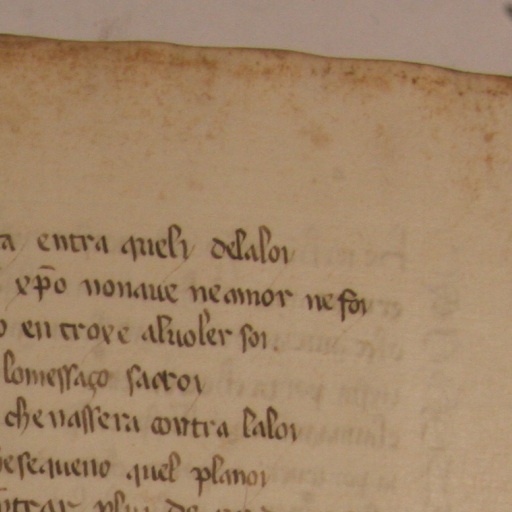 entra queli delaloi
xp̄o nonaue neamor nefoi
en croxe aluoler soi
lomessaço sacroi
che nassera contra laloi
quel planoi